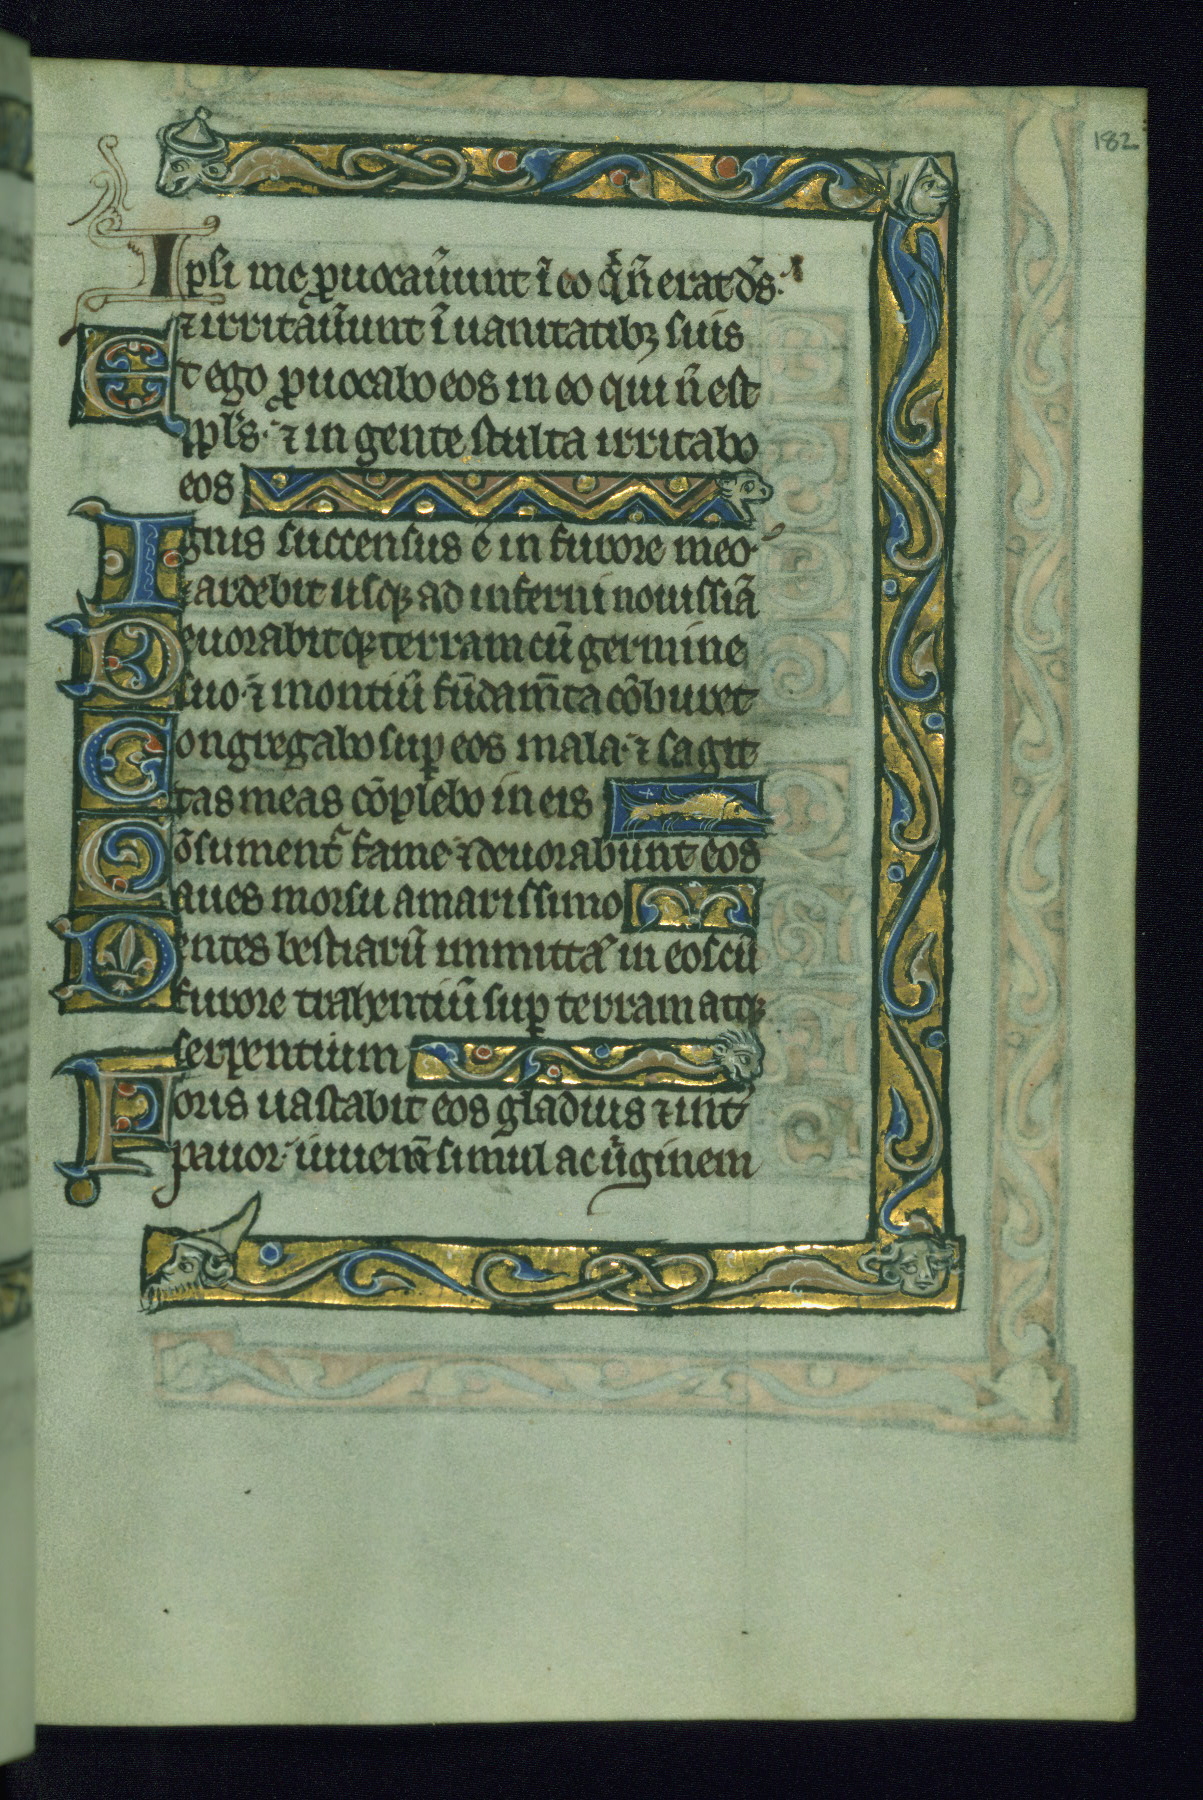 182
Ipsi me ꝓuocaũunt ĩ eo q̾ ñ erat d̃s.
⁊ irritãũunt ĩ uanitatibꝫ suis
Et ego ꝓuocabo eos in eo qui ñ est
ppl̃s. ⁊ in gente stulta irritabo
eos
Ignis succensus ẽ in furore meo.
⁊ ardebit usqꝫ ad inferni nouissiã
Deuorabitqꝫ terram cũ germine
suo. ⁊ montiũ fũdam̃ta cõburet
Congregabo suꝑ eos mala. ⁊ sagit
tas meas cõplebo in eis
Cõsument᷑ fame. ⁊ deuorabunt eos
aues morsu amarissimo
Dentes bestiarũ immittã in eos cũ
furore trahentiũ suꝑ terram atqꝫ
serpentium
Foris uastabit eos gladius ⁊ int᷑
pauor. iuuenẽ simul ac uͥginem